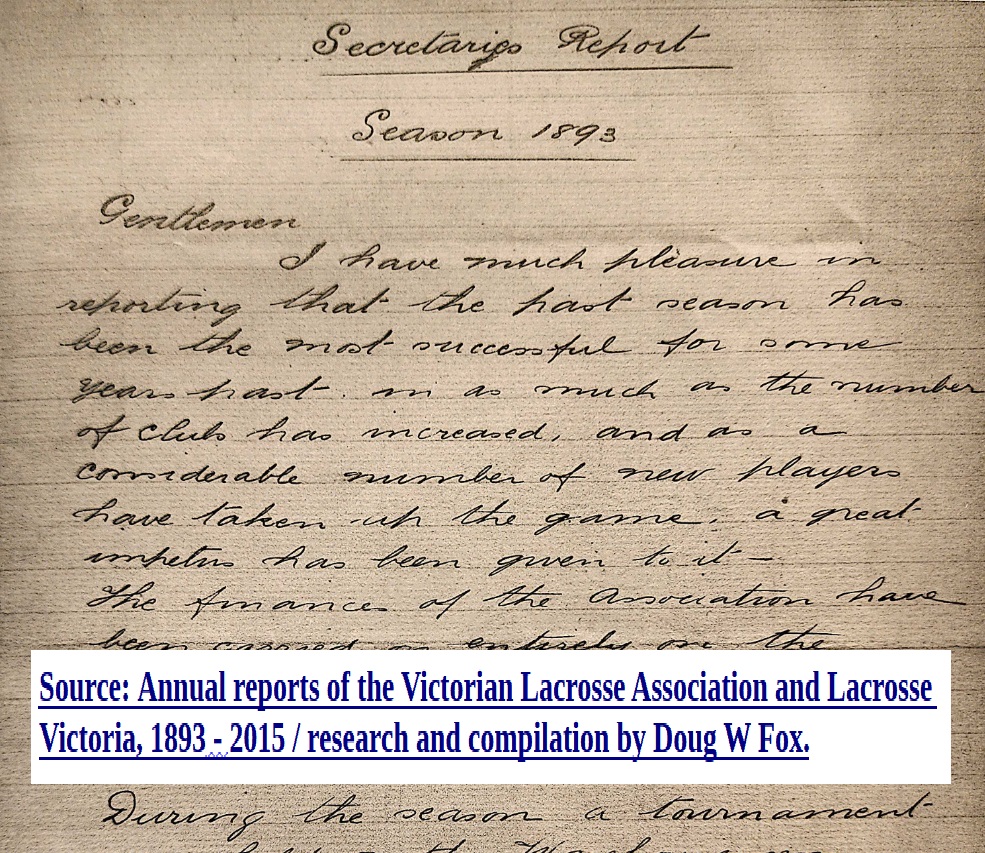 Secretaries Report
Season 1893
Gentlemen
I have much pleasure in
reporting that the past season has
been the most successful for some
years past. in as much as the number
of clubs has increased, and as a
considerable number of new players
have taken up the game, a great
impetus has been given to it—
The finances of the Association have
been carried on entirely on the
Source: Annual reports of the Victorian Lacrosse Association and Lacrosse
Victoria, 1893 - 2015 / research and compilation by Doug W Fox.
During the season a tournament